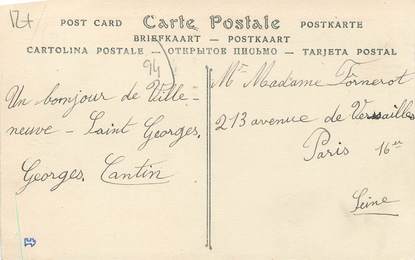 POST CARD Carte Postale POSTKARTE
BRIEFKAART — POSTKAART
CARTOLINA POSTALE — ОТКРЫТОЕ ПИСЬМО — TARJETA POSTAL
94
Un bonjour de Ville-
neuve - Saint Georges.
Georges. Cantin
Mr Madame Fornerot
213 avenue de Versailles
Paris 16em
Seine